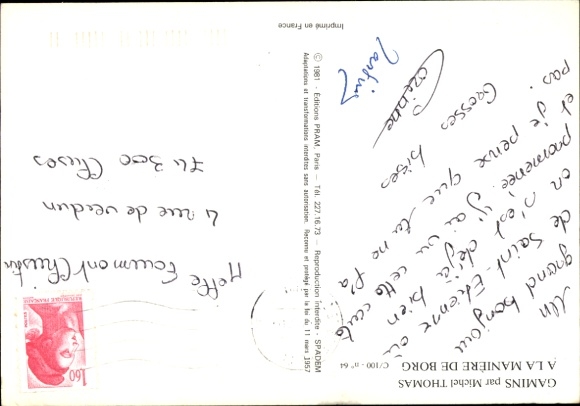 GAMINS par Michel THOMAS
A LA MANIÈRE DE BORG
C/100 - n° 64
Un grand bonjour
de Saint-Etienne où
en n'est déjà bien
promenée j'ai vu cette carte
et je pense que tu ne l'a
pas.
Grosses bises
Corinne
Martine
© 1981 - Editions PRAM, Paris - Tél. 227.16.73 - Reproduction interdite - SPADEM
Adaptations et transformations interdites sans autorisation. Reconnu et protégé par la loi du 11 mars 1957
Imprimé en France
1,60
REPUBLIQUE FRANÇAISE
Melle Fourmont Christine
4 rue de verdun
74 300 Cluses